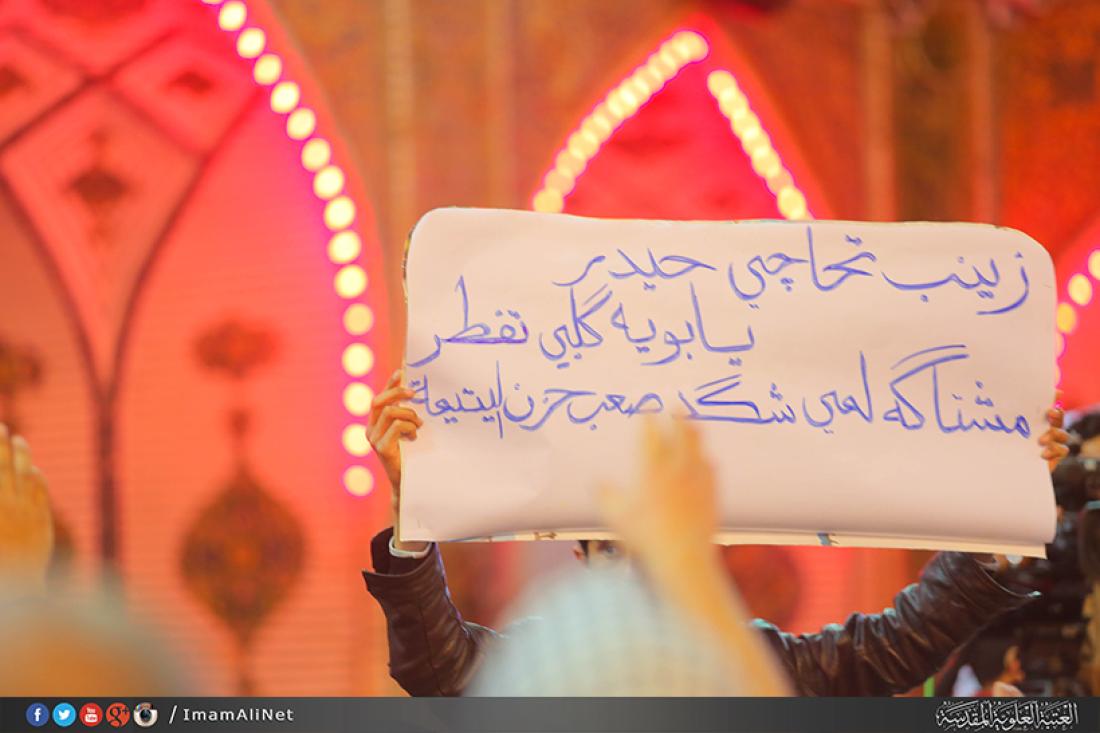 زينب تحاچي حيدر
يابويه گلبي تفطر
مشتاگه لمي شگد صعب حزن اليتيمة
/ImamAliNet
العتبة العلوية المقدسة